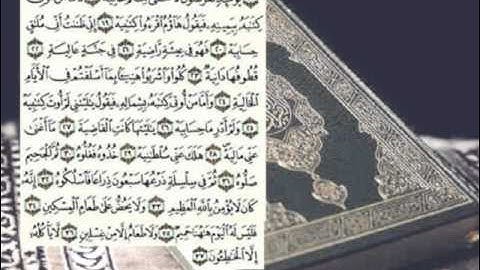 كِتَٰبَهُۥ بِيَمِينِهِۦ فَيَقُولُ هَآؤُمُ ٱقْرَءُوا۟ كِتَٰبِيَهْ ١٩ إِنِّى ظَنَنتُ أَنِّى مُلَٰقٍ
حِسَابِيَهْ ٢٠ فَهُوَ فِى عِيشَةٍ رَّاضِيَةٍ ٢١ فِى جَنَّةٍ عَالِيَةٍ ٢٢
قُطُوفُهَا دَانِيَةٌ ٢٣ كُلُوا۟ وَٱشْرَبُوا۟ هَنِيٓـًٔۢا بِمَآ أَسْلَفْتُمْ فِى ٱلْأَيَّامِ
ٱلْخَالِيَةِ ٢٤ وَأَمَّا مَنْ أُوتِىَ كِتَٰبَهُۥ بِشِمَالِهِۦ فَيَقُولُ يَٰلَيْتَنِى لَمْ أُوتَ كِتَٰبِيَهْ
٢٥ وَلَمْ أَدْرِ مَا حِسَابِيَهْ ٢٦ يَٰلَيْتَهَا كَانَتِ ٱلْقَاضِيَةَ ٢٧ مَآ أَغْنَىٰ
عَنِّى مَالِيَهْ ٢٨ هَلَكَ عَنِّى سُلْطَٰنِيَهْ ٢٩ خُذُوهُ فَغُلُّوهُ ٣٠ ثُمَّ ٱلْجَحِيمَ
صَلُّوهُ ٣١ ثُمَّ فِى سِلْسِلَةٍ ذَرْعُهَا سَبْعُونَ ذِرَاعًا فَٱسْلُكُوهُ ٣٢ إِنَّهُۥ
كَانَ لَا يُؤْمِنُ بِٱللَّهِ ٱلْعَظِيمِ ٣٣ وَلَا يَحُضُّ عَلَىٰ طَعَامِ ٱلْمِسْكِينِ ٣٤
فَلَيْسَ لَهُ ٱلْيَوْمَ هَٰهُنَا حَمِيمٌ ٣٥ وَلَا طَعَامٌ إِلَّا مِنْ غِسْلِينٍ ٣٦ لَّا يَأْكُلُهُۥٓ
إِلَّا ٱلْخَٰطِـُٔونَ ٣٧